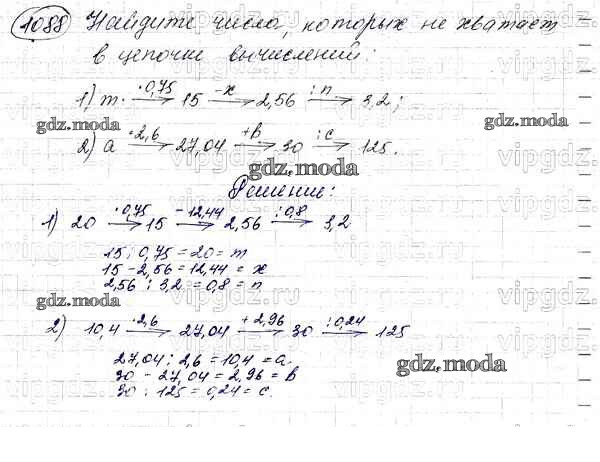 1088 Найдите числа, которых не хватает
в цепочке вычислений:
1) m · 0,75 → 15 – x → 2,56 : n → 3,2;
2) a · 2,6 → 27,04 + b → 30 : c → 125.
Решение:
1) 20 · 0,75 → 15 – 12,44 → 2,56 : 0,8 → 3,2
15 : 0,75 = 20 = m
15 – 2,56 = 12,44 = x
2,56 : 3,2 = 0,8 = n
2) 10,4 · 2,6 → 27,04 + 2,96 → 30 : 0,24 → 125
27,04 : 2,6 = 10,4 = a.
30 – 27,04 = 2,96 = b
30 : 125 = 0,24 = c.
gdz.moda
gdz.moda
gdz.moda
gdz.moda
gdz.moda
gdz.moda
vipgdz.ru
vipgdz.ru
vipgdz.ru
vipgdz.ru